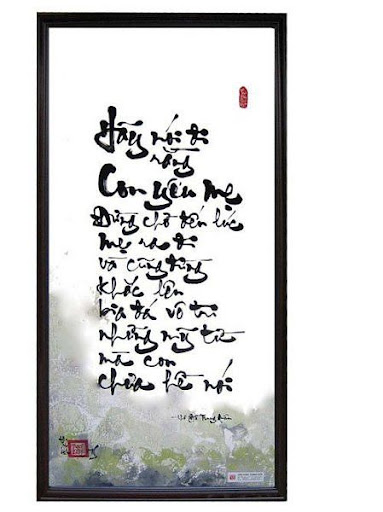 Hãy nói đi
rằng
Con yêu mẹ
Đừng chờ đến lúc
mẹ ra đi
và cũng đừng
khắc lên
bia đá vô tri
những mỹ từ
mà con
chưa hề nói